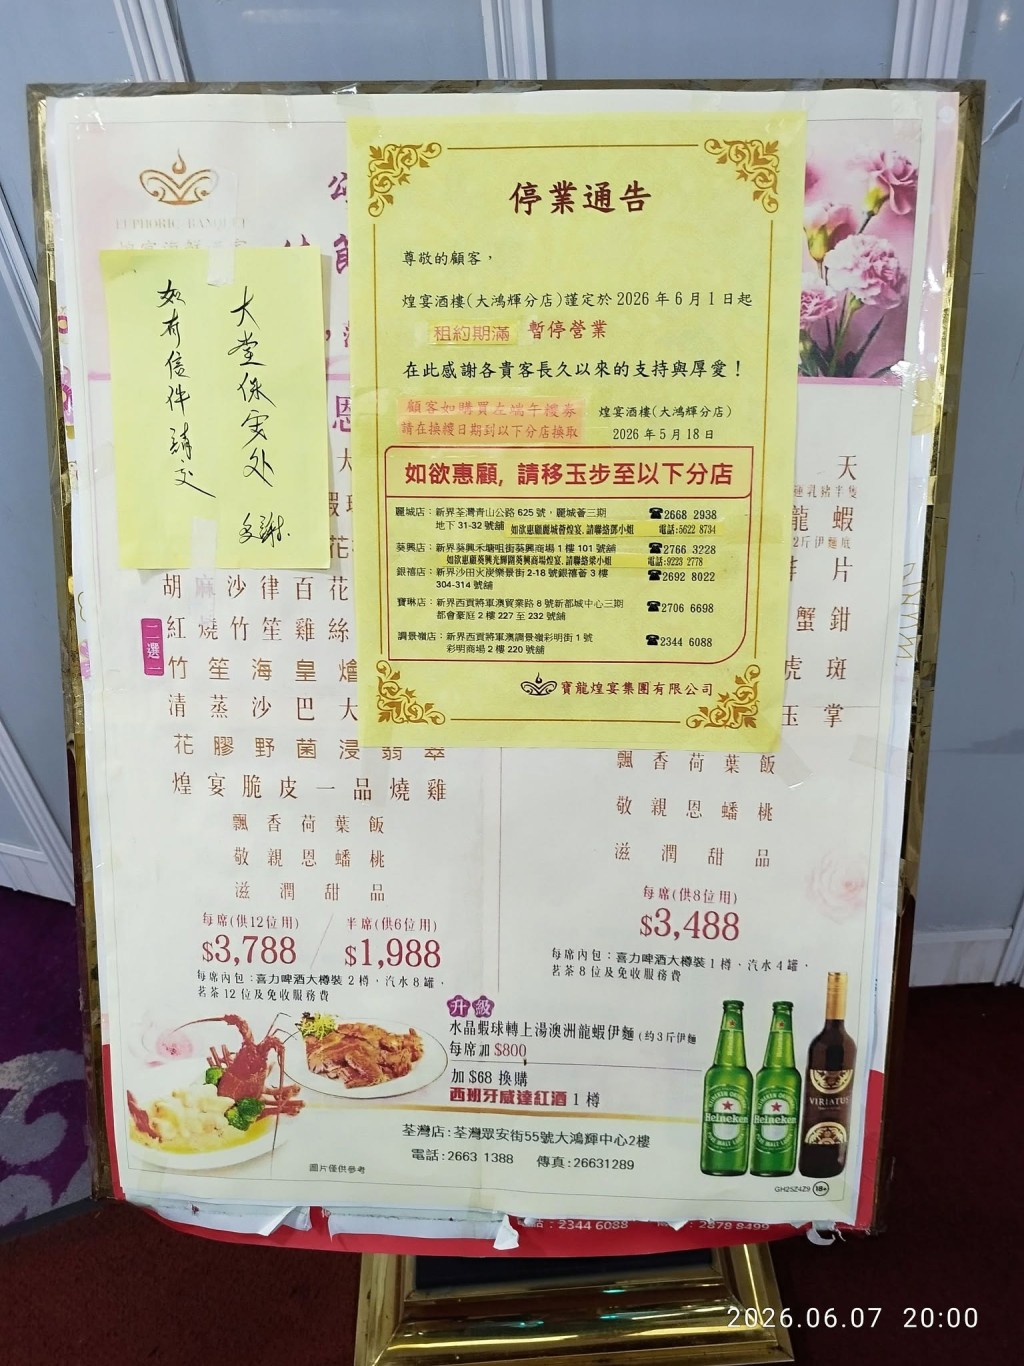 EUPHORIC BANQUET
停業通告
尊敬的顧客，
煌宴酒樓(大鴻輝分店)謹定於 2026 年 6 月 1 日起
租約期滿 暫停營業
在此感謝各貴客長久以來的支持與厚愛！
顧客如購買左端午糭券
請在換糭日期到以下分店換取
煌宴酒樓(大鴻輝分店)
2026 年 5 月 18 日
如欲惠顧, 請移玉步至以下分店
麗城店：新界荃灣青山公路 625 號，麗城薈三期
地下 31-32 號舖
☎2668 2938
如欲惠顧麗城薈煌宴, 請聯絡鄧小姐 電話:5622 8734
葵興店：新界葵興禾塘咀街葵興商場 1 樓 101 號舖
☎2766 3228
如欲惠顧葵興光輝圍葵興商場煌宴, 請聯絡梁小姐 電話:9223 2778
銀禧店：新界沙田火炭樂景街 2-18 號銀禧薈 3 樓
304-314 號舖
☎2692 8022
寶琳店：新界西貢將軍澳貿業路 8 號新都城中心三期
都會豪庭 2 樓 227 至 232 號舖
☎2706 6698
調景嶺店：新界西貢將軍澳調景嶺彩明街 1 號
彩明商場 2 樓 220 號舖
☎2344 6088
寶龍煌宴集團有限公司
如有信件請交
大堂保安处
多謝.
恩
大
花
胡麻沙律百花
二選一
紅燒竹笙雞絲
竹笙海皇燴
清蒸沙巴大
花膠野菌浸翡翠
煌宴脆皮一品燒雞
飄香荷葉飯
敬親恩蟠桃
滋潤甜品
每席(供12位用)
$3,788
半席(供6位用)
$1,988
每席內包：喜力啤酒大樽裝 2 樽、汽水 8 罐、
茗茶 12 位及免收服務費
天
乳豬半隻
龍蝦
2斤伊麵底
片
蟹鉗
虎斑
玉掌
飄香荷葉飯
敬親恩蟠桃
滋潤甜品
每席(供8位用)
$3,488
每席內包：喜力啤酒大樽裝 1 樽、汽水 4 罐、
茗茶 8 位及免收服務費
升級
水晶蝦球轉上湯澳洲龍蝦伊麵 (約3斤伊麵
每席加 $800
加 $68 換購
西班牙威達紅酒 1 樽
Heineken
Heineken
VIRIATUS
荃灣店:荃灣眾安街55號大鴻輝中心2樓
電話:2663 1388 傳真:26631289
圖片僅供參考
GH25Z4Z9 18+
2344 6088
2878 8499
2026.06.07 20:00